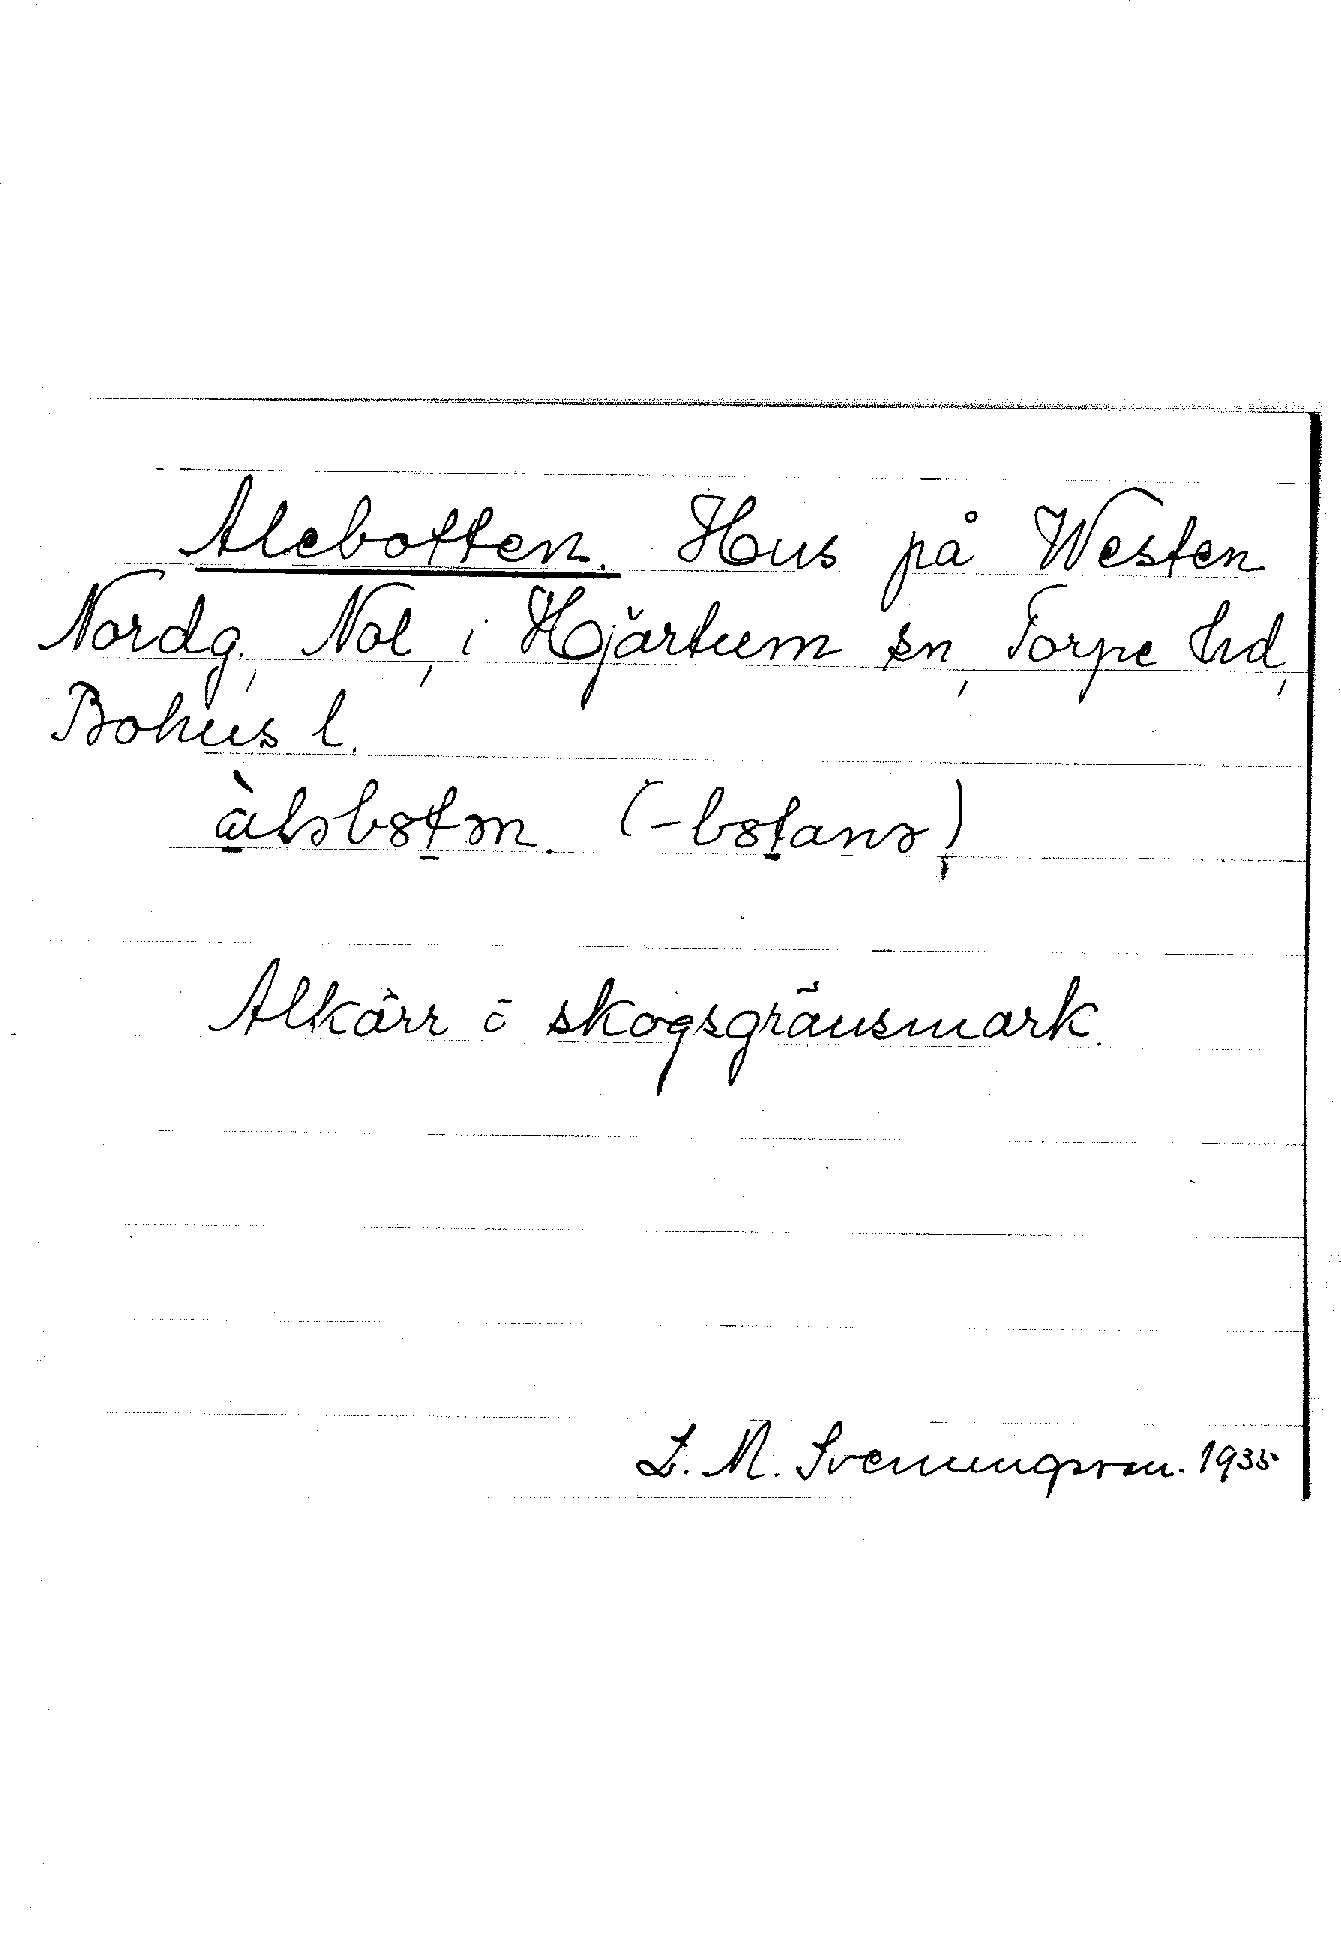 Alebotten. Hus på Westen
Nordg, Nol, i Hjärtum sn, Torpe hd,
Bohus l.
Alkärr o skogsgräusmark.
L. M. Svenungsson. 1935